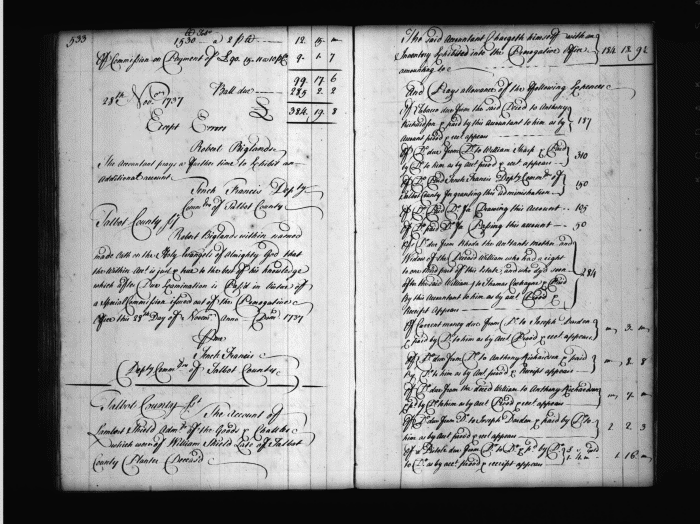 533
1530 — a 2 p Ct — 12 . 15 . m
Off Commission on Payment of £90. 15. 11 a 10 p Ct 9 . 1 . 7
99 . 17 . 6
Ball due — 225 . 2 . 2
28th Nov. 1737 £ 324 . 19 . 8
Except Errors
Robert Biglands
The Accountant prays a further time to Exhibit an
additional account
Tench Francis Depty
Com of Talbot County
Talbot County ss
Robert Biglands within named
made Oath on the Holy Evangels of Almighty God that
the within Act is just & true to the best of his knowledge
which after Due Examination is Pass'd in Virtue of
a Special Commission issued out of the Prerogative
Office this 28th Day of Novem Anno Dom 1737
Tench Francis
Depty Com of Talbot County
Talbot County ss
The Account of
Lambert Shield Adm of the Goods & Chattles
which were of William Shield Late of Talbot
County Planter Deceased
The said Accountant Chargeth himself with an
Inventory Exhibited into the Prerogative Office
amounting to 124 . 13 . 9
And Prays allowance of the following Expences
Of Tobacco due from the said Deced to Anthony
Richardson & paid by this Accountant to him as by
Account proved & rect appears 187
Of Do due from Do to William Sharp & Paid
by Do to him as by act proved & rect appears 310
Of Do Paid Tench Francis Depty Com of
Talbot County for granting this administration 190
Of Do Paid Do for Drawing this Account 105
Of Do Paid Do for Passing this account 50
Of Do due from Rhoda the Acctants mother and
Widow of the Deceed William who had a right
to one third part of this Estate, and who dyed soon
after the said William
By this Accountant to him as by act Proved &
Receipt appears 284
Of Current money due from Do to Joseph
& paid by Do to him as by act Proved & rect appears m . 3 . m
Of Do due from Do to Anthony Richardson & paid
by Do to him as by Act proved & Receipt appears m . 8 . 8
Of Do due from the said William to Anthony Richardson
& pd by Do to him as by Act Proved & rect appears m . 7 . m
Of Do due from Do to Joseph & paid by Do to
him as by act proved & rect appears 1 . 2 . 3
Of due from Do to Do & pd by Do
to Do as by act proved & receipt appears 1 . 16 . m